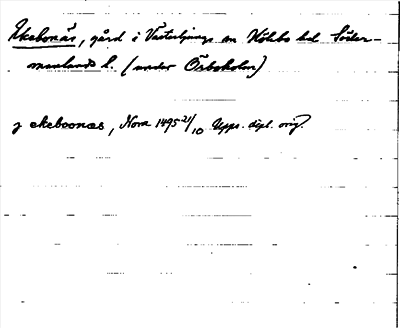 Ekebonäs, gård i Västerljungs sn Hölebo hd Söder-
manlands l. (under Örboholm)
j ekeboonæs, Nora 1495 21/10 Upps. dipl. orig.